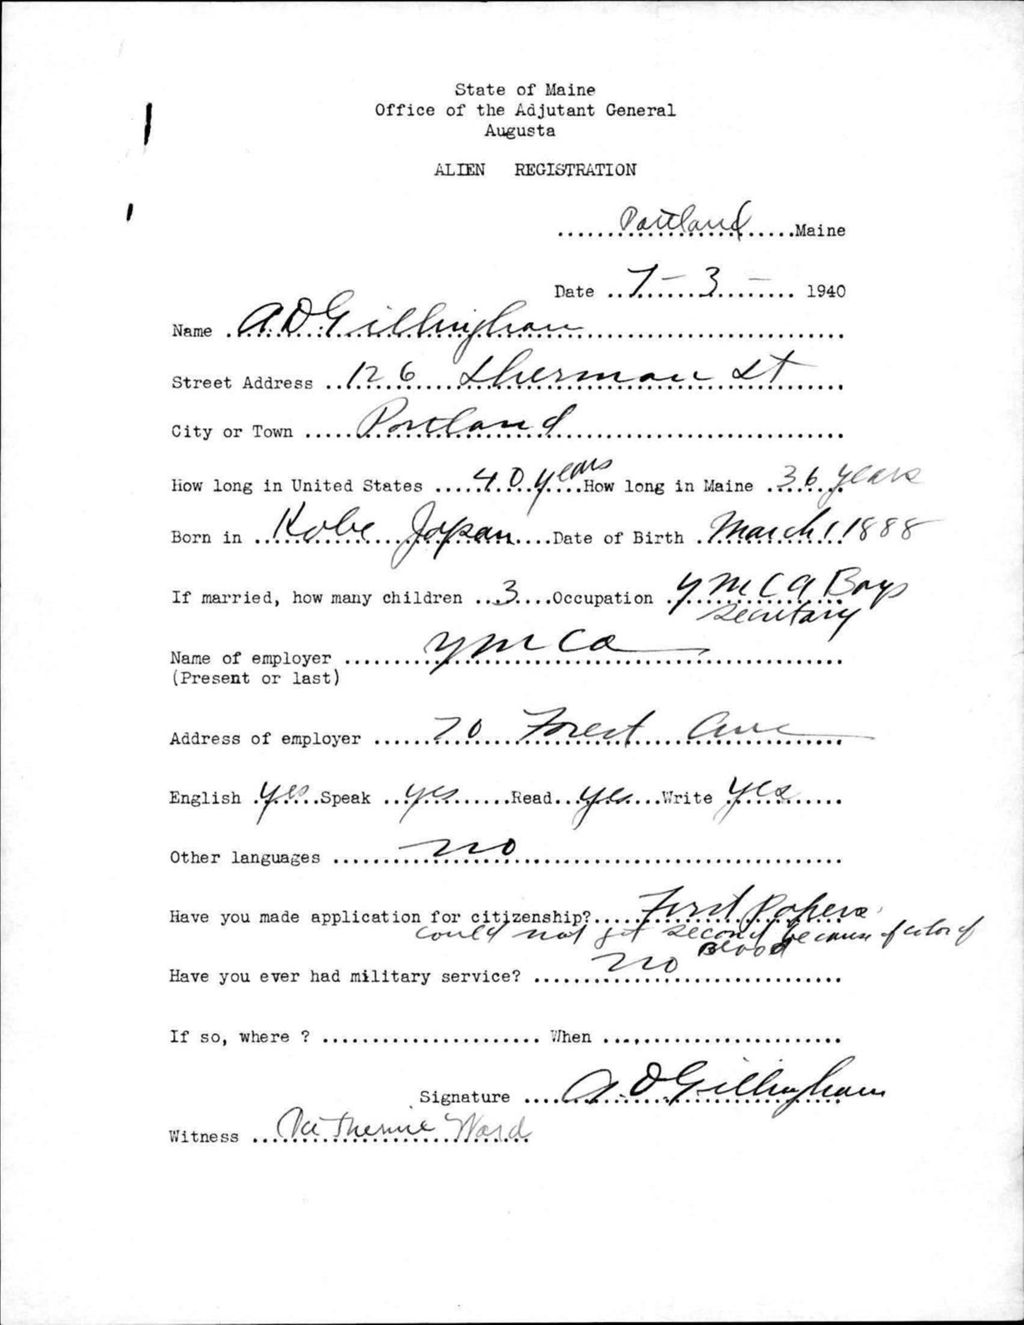 State of Maine
Office of the Adjutant General
Augusta
ALIEN REGISTRATION
......Portland.....Maine
Date ..7-....3-........ 1940
Name .A.D. Gillingham..........................
Street Address ..126....Sherman St.......
City or Town .....Portland..................................
How long in United States .....40 years...How long in Maine .36 years
Born in ..Kobe...Japan....Date of Birth .March 1, 1888
If married, how many children ..3....Occupation .YMCA Boys
Secretary
Name of employer .........YMCA..........................
(Present or last)
Address of employer ......70....Forest....Ave......
English .yes...Speak ..yes.......Read..yes...Write yes.....
Other languages ..........no................................
Have you made application for citizenship?....First Papers.
could not get second because of color of
Blood
Have you ever had military service? .......no....................
If so, where ? ...................... When ........................
Signature ....A.D. Gillingham
Witness ...Catherine Ward